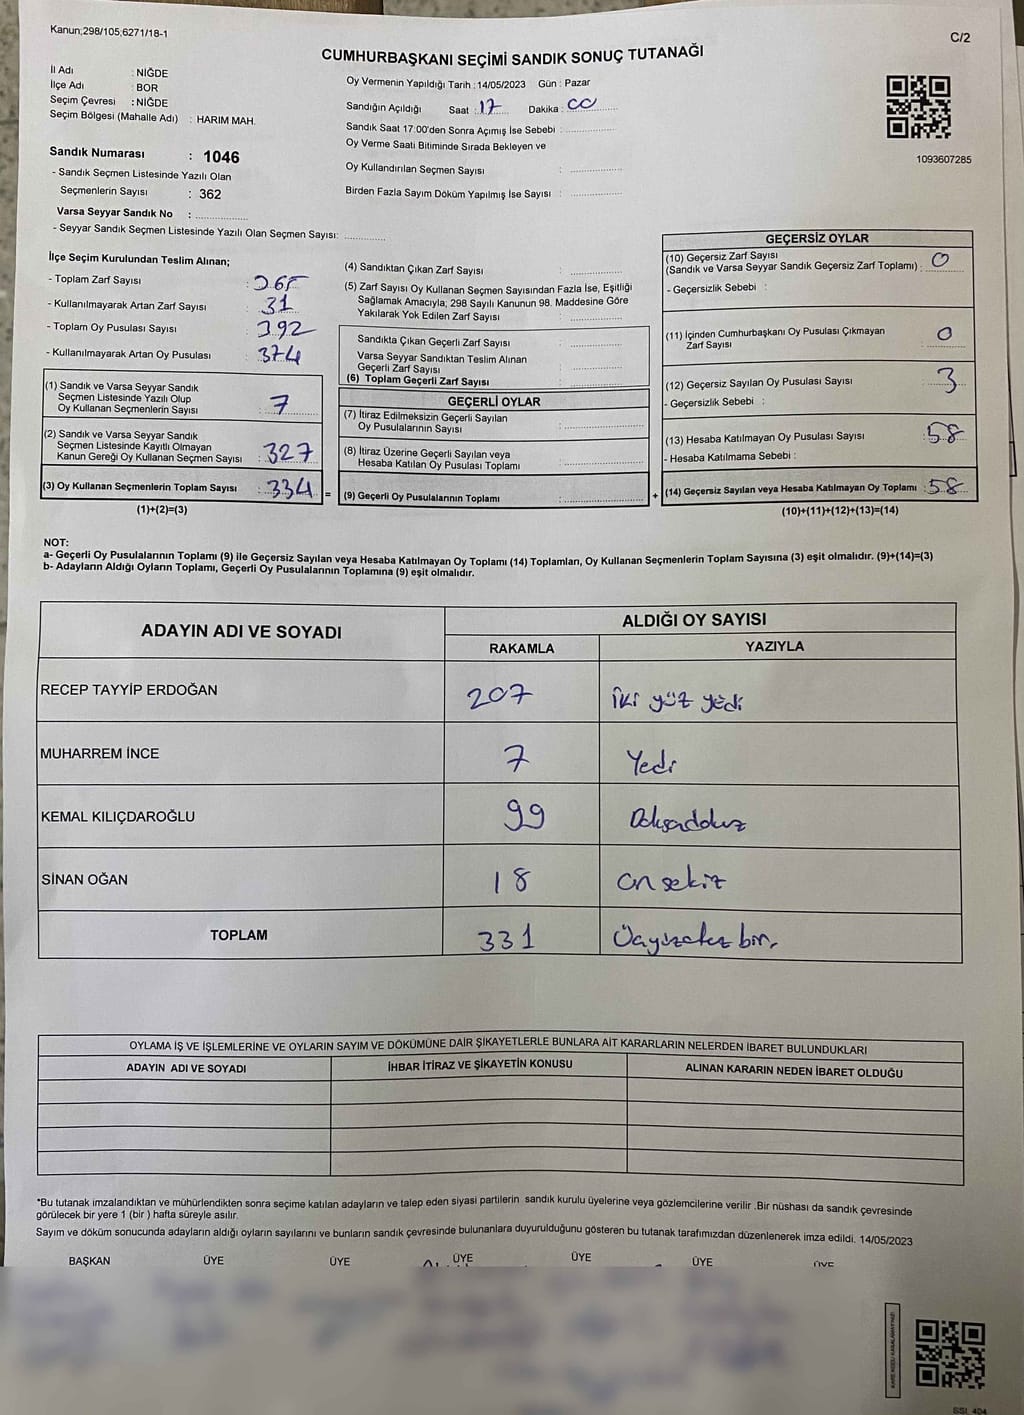 Kanun;298/105;6271/18-1
C/2
CUMHURBAŞKANI SEÇİMİ SANDIK SONUÇ TUTANAĞI
İl Adı : NİĞDE
İlçe Adı : BOR
Seçim Çevresi : NİĞDE
Seçim Bölgesi (Mahalle Adı) : HARIM MAH.
Sandık Numarası : 1046
- Sandık Seçmen Listesinde Yazılı Olan
Seçmenlerin Sayısı : 362
Varsa Seyyar Sandık No :
- Seyyar Sandık Seçmen Listesinde Yazılı Olan Seçmen Sayısı:
Oy Vermenin Yapıldığı Tarih : 14/05/2023 Gün : Pazar
Sandığın Açıldığı Saat : 17 Dakika : 00
Sandık Saat 17:00'den Sonra Açımış İse Sebebi :
Oy Verme Saati Bitiminde Sırada Bekleyen ve
Oy Kullandırılan Seçmen Sayısı :
Birden Fazla Sayım Döküm Yapılmış İse Sayısı :
1093607285
İlçe Seçim Kurulundan Teslim Alınan;
- Toplam Zarf Sayısı :
- Kullanılmayarak Artan Zarf Sayısı : 31
- Toplam Oy Pusulası Sayısı : 392
- Kullanılmayarak Artan Oy Pusulası : 374
(1) Sandık ve Varsa Seyyar Sandık
Seçmen Listesinde Yazılı Olup
Oy Kullanan Seçmenlerin Sayısı : 7
(2) Sandık ve Varsa Seyyar Sandık
Seçmen Listesinde Kayıtlı Olmayan
Kanun Gereği Oy Kullanan Seçmen Sayısı : 327
(3) Oy Kullanan Seçmenlerin Toplam Sayısı : 334
(1)+(2)=(3)
(4) Sandıktan Çıkan Zarf Sayısı :
(5) Zarf Sayısı Oy Kullanan Seçmen Sayısından Fazla İse, Eşitliği
Sağlamak Amacıyla; 298 Sayılı Kanunun 98. Maddesine Göre
Yakılarak Yok Edilen Zarf Sayısı :
Sandıkta Çıkan Geçerli Zarf Sayısı :
Varsa Seyyar Sandıktan Teslim Alınan
Geçerli Zarf Sayısı :
(6) Toplam Geçerli Zarf Sayısı :
GEÇERLİ OYLAR
(7) İtiraz Edilmeksizin Geçerli Sayılan
Oy Pusulalarının Sayısı :
(8) İtiraz Üzerine Geçerli Sayılan veya
Hesaba Katılan Oy Pusulası Toplamı :
= (9) Geçerli Oy Pusulalarının Toplamı : +
GEÇERSİZ OYLAR
(10) Geçersiz Zarf Sayısı
(Sandık ve Varsa Seyyar Sandık Geçersiz Zarf Toplamı) : 0
- Geçersizlik Sebebi :
(11) İçinden Cumhurbaşkanı Oy Pusulası Çıkmayan
Zarf Sayısı 0
(12) Geçersiz Sayılan Oy Pusulası Sayısı 3
- Geçersizlik Sebebi :
(13) Hesaba Katılmayan Oy Pusulası Sayısı : 58
- Hesaba Katılmama Sebebi :
(14) Geçersiz Sayılan veya Hesaba Katılmayan Oy Toplamı : 58
(10)+(11)+(12)+(13)=(14)
NOT:
a- Geçerli Oy Pusulalarının Toplamı (9) ile Geçersiz Sayılan veya Hesaba Katılmayan Oy Toplamı (14) Toplamları, Oy Kullanan Seçmenlerin Toplam Sayısına (3) eşit olmalıdır. (9)+(14)=(3)
b- Adayların Aldığı Oyların Toplamı, Geçerli Oy Pusulalarının Toplamına (9) eşit olmalıdır.
ADAYIN ADI VE SOYADI
ALDIĞI OY SAYISI
RAKAMLA YAZIYLA
RECEP TAYYİP ERDOĞAN 207 İki yüz yedi
MUHARREM İNCE 7 Yedi
KEMAL KILIÇDAROĞLU 99
SİNAN OĞAN 18 on sekiz
TOPLAM 331
OYLAMA İŞ VE İŞLEMLERİNE VE OYLARIN SAYIM VE DÖKÜMÜNE DAİR ŞİKAYETLERLE BUNLARA AİT KARARLARIN NELERDEN İBARET BULUNDUKLARI
ADAYIN ADI VE SOYADI İHBAR İTİRAZ VE ŞİKAYETİN KONUSU ALINAN KARARIN NEDEN İBARET OLDUĞU
*Bu tutanak imzalandıktan ve mühürlendikten sonra seçime katılan adayların ve talep eden siyasi partilerin sandık kurulu üyelerine veya gözlemcilerine verilir .Bir nüshası da sandık çevresinde
görülecek bir yere 1 (bir ) hafta süreyle asılır.
Sayım ve döküm sonucunda adayların aldığı oyların sayılarını ve bunların sandık çevresinde bulunanlara duyurulduğunu gösteren bu tutanak tarafımızdan düzenlenerek imza edildi. 14/05/2023
BAŞKAN ÜYE ÜYE ÜYE ÜYE ÜYE ÜYE
SSI_404